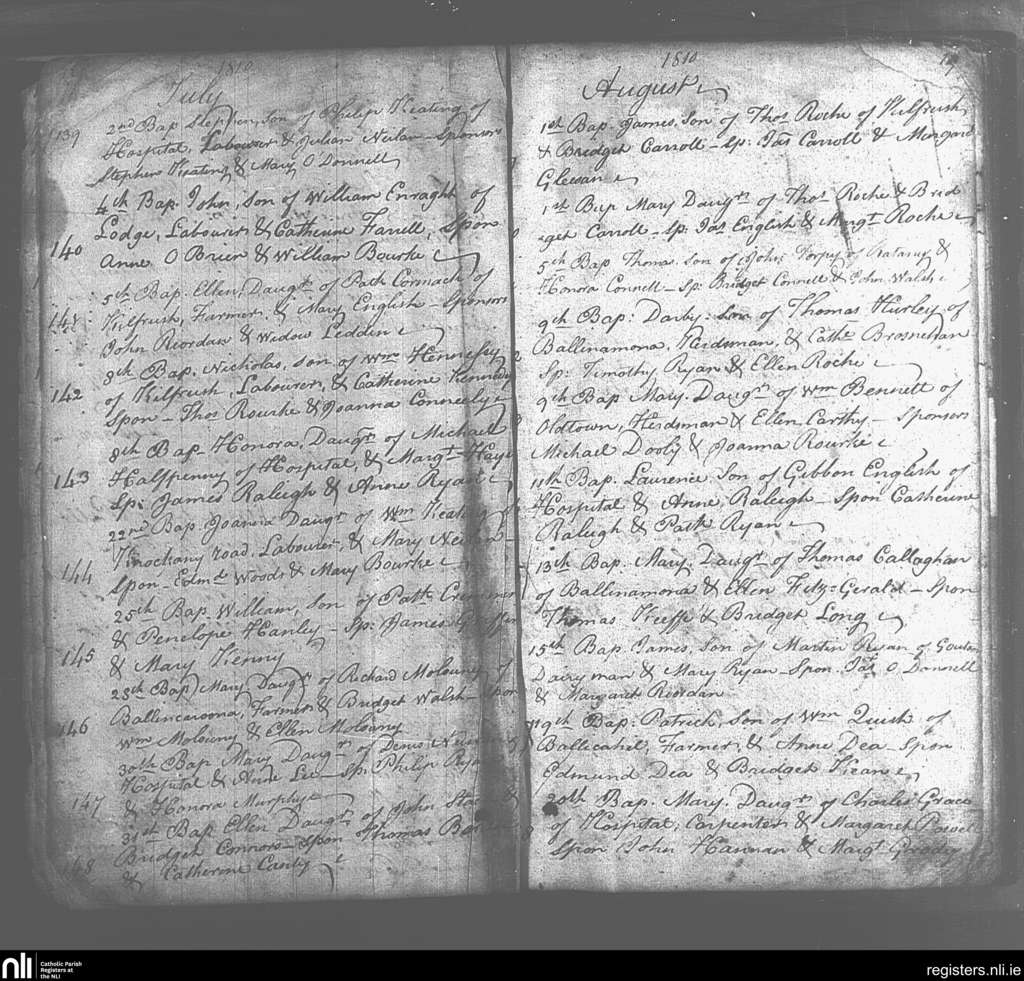 1810
July
139 2nd Bap Stephen, Son of Philip Keating of
Hospital, Labourer & Julian Neilan Sponsors
Stephen Keating & Mary O Donnell
4th Bap. John, Son of William Enraght of
Lodge, Labourer & Catherine Farrell, Spon
140 Anne O Brien & William Bourke
5th Bap. Ellen, Daugtr of Patk Cormack of
141 Kilfrush, Farmer, & Mary English - Sponsors
John Riordan & Widow Leddin
8th Bap. Nicholas, Son of Wm Hennessy
142 of Kilfrush, Labourer, & Catherine Kennedy
Spon - Thos Rourke & Joanna Conneely
8th Bap Honora, Daugr of Michael
143 Halfpenny of Hospital, & Margt Hays
Sp: James Raleigh & Anne Ryan
22nd Bap Joanna Daugr of Wm Keating of
Knockany road, Labourer, & Mary
144 Spon - Edmd Woods & Mary Bourke
25th Bap William, Son of Patk
& Penelope Hanley - Sp: James Griffin
145 & Mary Kenny
28th Bap Mary Daugr of Richard Molouny of
Ballincaroona, Farmer & Bridget Walsh - Spon
146 Wm Molouny & Ellen Molouny
30th Bap Mary Daugr of Denis
Hospital & Anne Lee - Sp: Philip Ryan
147 & Honora Murphy
31st Bap Ellen Daugr of John
Bridget Connors - Spon Thomas
148 & Catherine Canty
1810
August
1st Bap. James, Son of Thos Roche of Kilfrush,
& Bridget Carroll - Sp: Jas Carroll & Margaret
Gleesan
1st Bap Mary Daugr of Thos Roche & Brid
get Carroll - Sp: Jas English & Margt Roche
5th Bap Thomas, Son of John of &
Honora Connell - Sp: Bridget Connell & John Walsh
9th Bap: Darby: Son of Thomas Hurley of
Ballinamona, Herdsman, & Cathe Brosnehan
Sp: Timothy Ryan & Ellen Roche
9th Bap Mary. Daugr of Wm Bennett of
Oldtown, Herdsman & Ellen Carthy - Sponsors
Michael Dooly & Joanna Rourke
11th Bap. Laurence, Son of Gibbon English of
Hospital & Anne Raleigh - Spon Catherine
Raleigh & Patk Ryan
13th Bap. Mary, Daugt of Thomas Callaghan
of Ballinamona & Ellen Fitz-Gerald - Spon
Thomas Keeffe & Bridget Long
15th Bap. James, Son of Martin Ryan of
Dairyman & Mary Ryan - Spon. Jas O. Donnell
& Margaret Riordan
19th Bap: Patrick, Son of Wm Quish of
Ballicahil, Farmer, & Anne Dea - Spon
Edmund Dea & Bridget Kean
20th Bap. Mary. Daugr of Charles Grace
of Hospital, Carpenter & Margaret Power
Spon John Hannan & Margt Grady
nli
Catholic Parish
Registers at
the NLI
registers.nli.ie